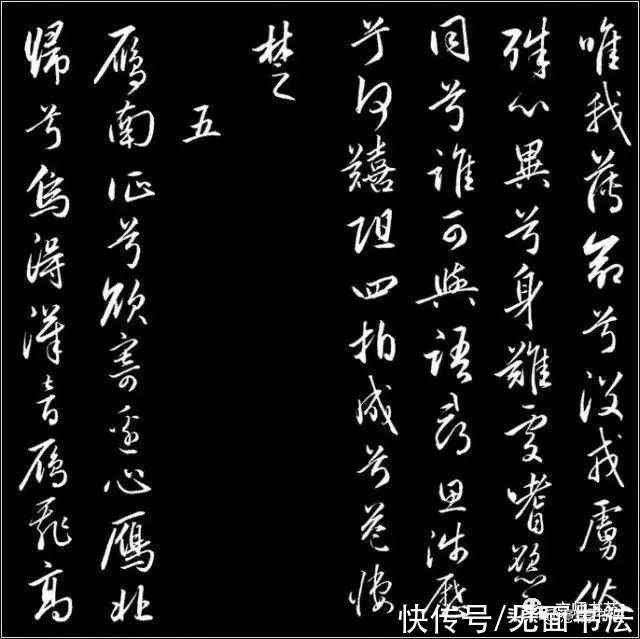 唯我薄命兮没戎虜俗
殊心異兮身難處嗜慾
同兮誰可與語尋思涉歷
兮何囏阻四拍成兮益悽
楚
五
鴈南征兮欲寄邊心鴈北
歸兮為得漢音鴈飛高
快传号/见面书法